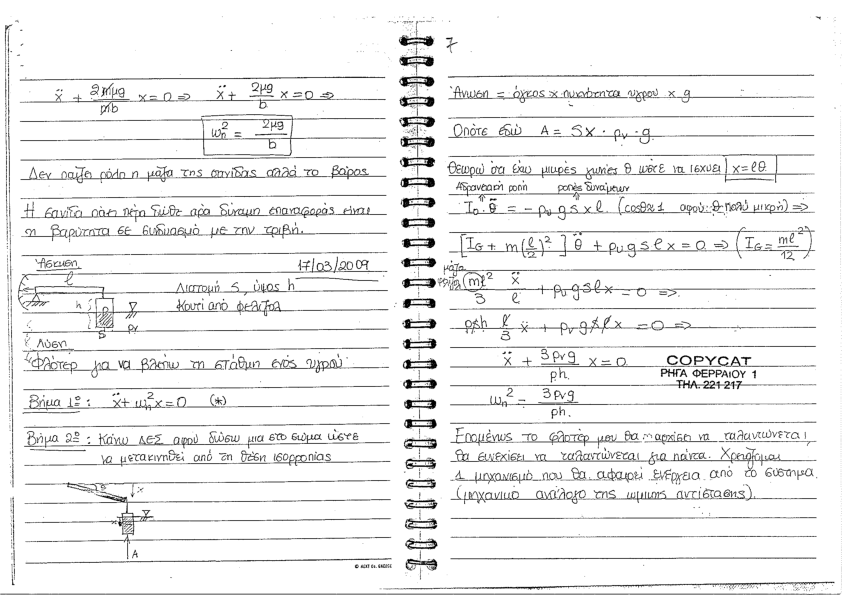 ẍ + 2mμg/mb x = 0 => ẍ + 2μg/b x = 0 =>
ωn² = 2μg/b
Δεν παίζει ρόλο η μάζα της σανίδας αλλά το βάρος
Η σανίδα πάει πέρα δώθε άρα δύναμη επαναφοράς είναι
η βαρύτητα σε συνδυασμό με την τριβή.
Άσκηση 17/03/2009
l
Διατομή S, ύψος h
h
ρ
Κουτί από φελιζόλ
S ρν
Λύση
Φλοτέρ για να βλέπω τη στάθμη ενός υγρού
Βήμα 1º : ẍ + ωn² x = 0 (*)
Βήμα 2º : Κάνω ΔΕΣ αφού δώσω μια στο σώμα ώστε
να μετακινηθεί από τη θέση ισορροπίας
θ x
x
A
© NEXT
7
Άνωση = όγκος x πυκνότητα υγρού x g
Οπότε εδώ A = Sx · ρν · g.
Θεωρώ ότι έχω μικρές γωνίες θ ώστε να ισχύει x = lθ
Αδρανειακή ροπή ροπές δυνάμεων
Io · θ̈ = - ρν g S x l. (cosθ≈1 αφού θ πολύ μικρή) =>
[IG + m(l/2)²] θ̈ + ρν g S l x = 0 => (IG = ml²/12)
μάζα
ml²/3 ẍ/l + ρν g S l x = 0 =>
ρSh l/3 ẍ + ρν g S l x = 0 =>
ẍ + 3ρν g/ρh x = 0
COPYCAT
ΡΗΓΑ ΦΕΡΡΑΙΟΥ 1
ΤΗΛ. 221 217
ωn² = 3ρν g/ρh.
Επομένως το φλοτέρ μου θα αρχίσει να ταλαντώνεται,
θα συνεχίσει να ταλαντώνεται για πάντα. Χρειάζομαι
1 μηχανισμό που θα αφαιρεί ενέργεια από το σύστημα.
(μηχανικό ανάλογο της ωμικής αντίστασης).